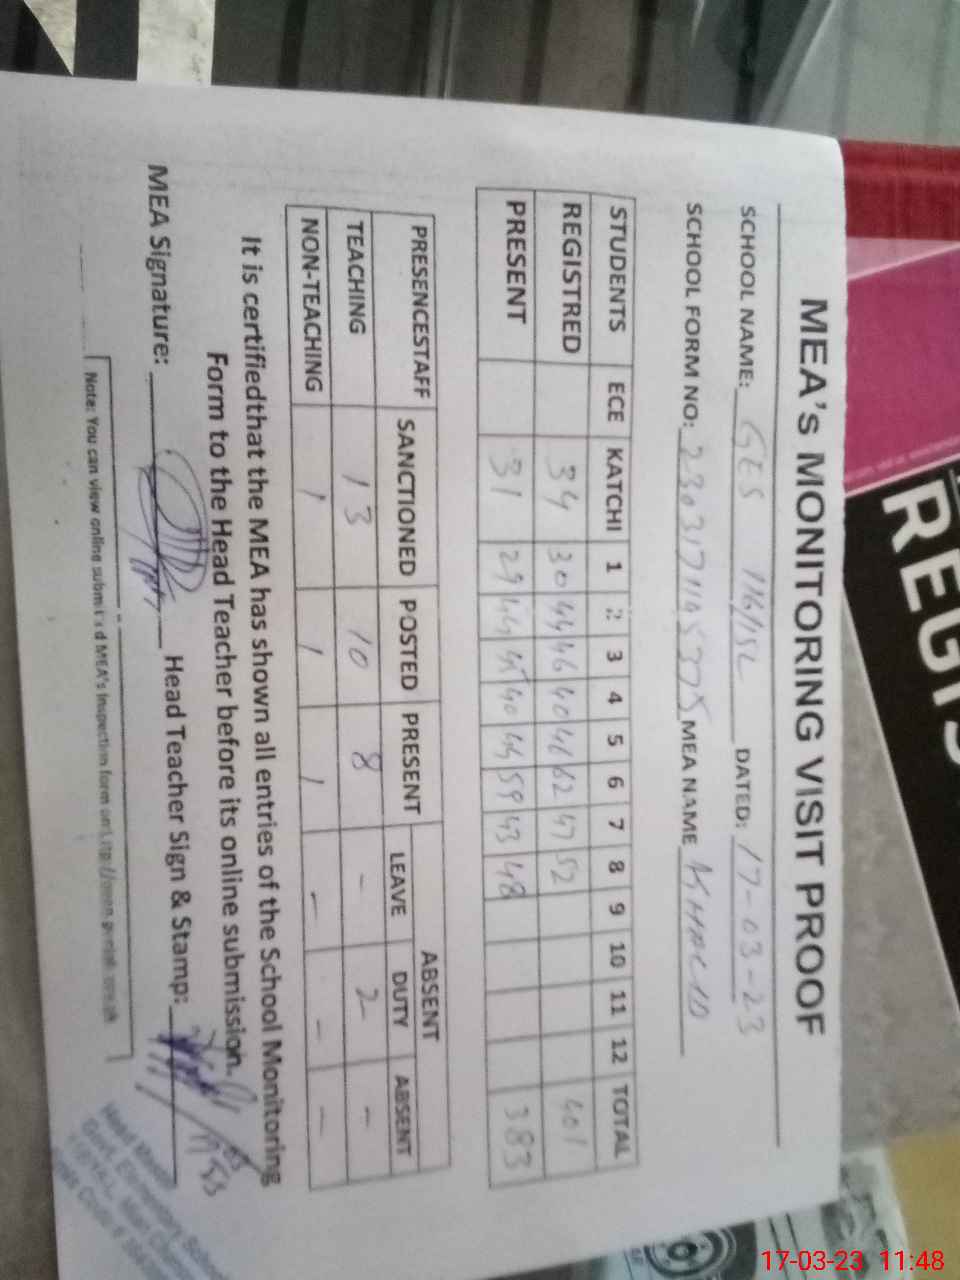 MEA's MONITORING VISIT PROOF
SCHOOL NAME: GES 116/15L DATED: 17-03-23
SCHOOL FORM NO: MEA NAME KHALID
STUDENTS ECE KATCHI 1 2 3 4 5 6 7 8 9 10 11 12 TOTAL
REGISTRED 34 30 44 46 40 46 62 47 52 401
PRESENT 31 29 44 45 40 44 59 43 48 383
PRESENCESTAFF SANCTIONED POSTED PRESENT ABSENT
LEAVE DUTY ABSENT
TEACHING 13 10 8 - 2 -
NON-TEACHING 1 1 1 - - -
It is certifiedthat the MEA has shown all entries of the School Monitoring
Form to the Head Teacher before its online submission.
MEA Signature: Head Teacher Sign & Stamp:
Head Master
Govt. Elementary School
116/15-L, Mian Channu
Note: You can view online submitted MEA's Inspection form on:
REGIS
17-03-23 11:48